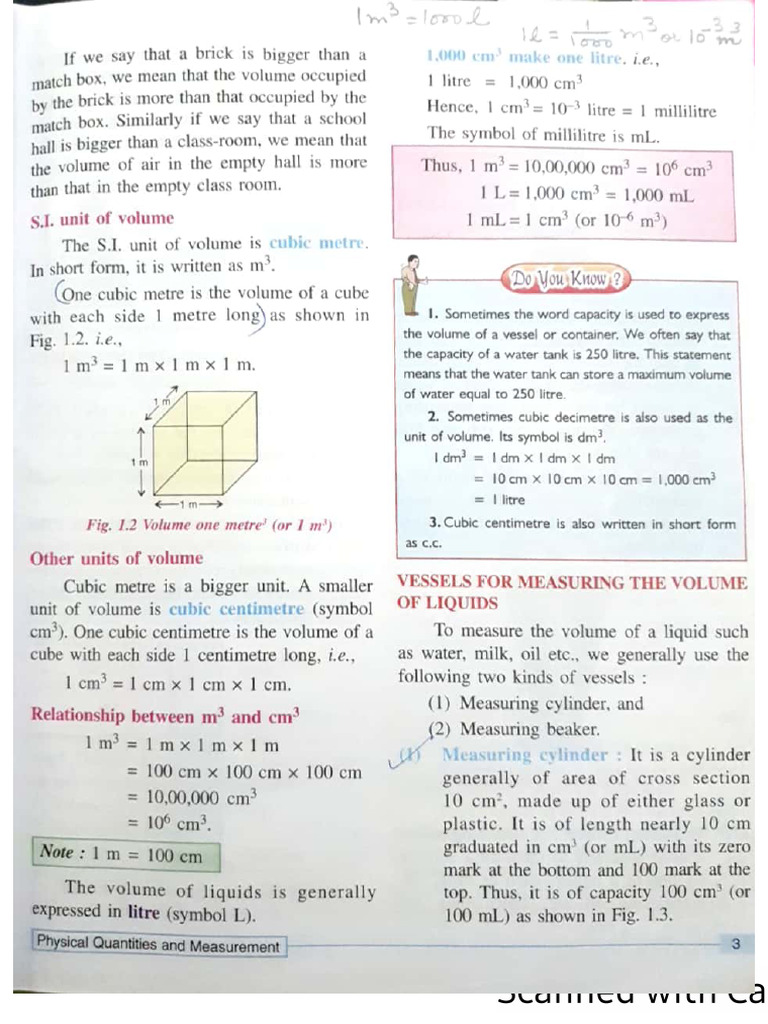 1m³ = 1000 l
1l = 1/1000 m³ or 10⁻³ m³
If we say that a brick is bigger than a
match box, we mean that the volume occupied
by the brick is more than that occupied by the
match box. Similarly if we say that a school
hall is bigger than a class-room, we mean that
the volume of air in the empty hall is more
than that in the empty class room.
S.I. unit of volume
The S.I. unit of volume is cubic metre.
In short form, it is written as m³.
(One cubic metre is the volume of a cube
with each side 1 metre long) as shown in
Fig. 1.2. i.e.,
1 m³ = 1 m × 1 m × 1 m.
1 m
1 m
1 m
Fig. 1.2 Volume one metre³ (or 1 m³)
Other units of volume
Cubic metre is a bigger unit. A smaller
unit of volume is cubic centimetre (symbol
cm³). One cubic centimetre is the volume of a
cube with each side 1 centimetre long, i.e.,
1 cm³ = 1 cm × 1 cm × 1 cm.
Relationship between m³ and cm³
1 m³ = 1 m × 1 m × 1 m
= 100 cm × 100 cm × 100 cm
= 10,00,000 cm³
= 10⁶ cm³.
Note : 1 m = 100 cm
The volume of liquids is generally
expressed in litre (symbol L).
1,000 cm³ make one litre. i.e.,
1 litre = 1,000 cm³
Hence, 1 cm³ = 10⁻³ litre = 1 millilitre
The symbol of millilitre is mL.
Thus, 1 m³ = 10,00,000 cm³ = 10⁶ cm³
1 L = 1,000 cm³ = 1,000 mL
1 mL = 1 cm³ (or 10⁻⁶ m³)
Do You Know ?
1. Sometimes the word capacity is used to express
the volume of a vessel or container. We often say that
the capacity of a water tank is 250 litre. This statement
means that the water tank can store a maximum volume
of water equal to 250 litre.
2. Sometimes cubic decimetre is also used as the
unit of volume. Its symbol is dm³.
1 dm³ = 1 dm × 1 dm × 1 dm
= 10 cm × 10 cm × 10 cm = 1,000 cm³
= 1 litre
3. Cubic centimetre is also written in short form
as c.c.
VESSELS FOR MEASURING THE VOLUME
OF LIQUIDS
To measure the volume of a liquid such
as water, milk, oil etc., we generally use the
following two kinds of vessels :
(1) Measuring cylinder, and
(2) Measuring beaker.
(1) Measuring cylinder : It is a cylinder
generally of area of cross section
10 cm², made up of either glass or
plastic. It is of length nearly 10 cm
graduated in cm³ (or mL) with its zero
mark at the bottom and 100 mark at the
top. Thus, it is of capacity 100 cm³ (or
100 mL) as shown in Fig. 1.3.
Physical Quantities and Measurement
3
Scanned with Ca